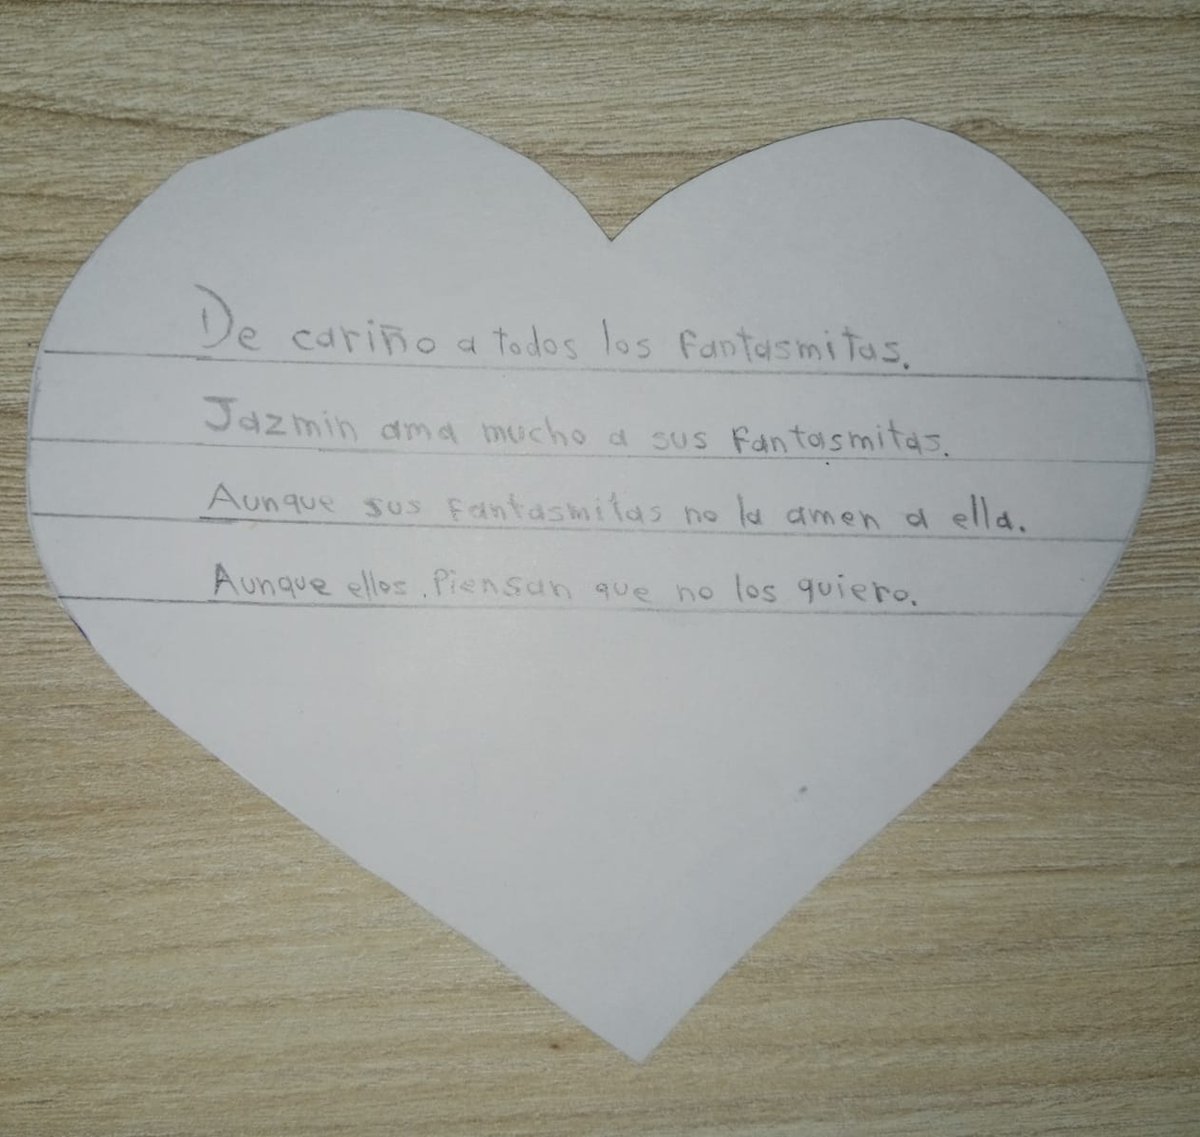 De cariño a todos los fantasmitas.
Jazmin ama mucho a sus fantasmitas.
Aunque sus fantasmitas no la amen a ella.
Aunque ellos. Piensan que no los quiero.